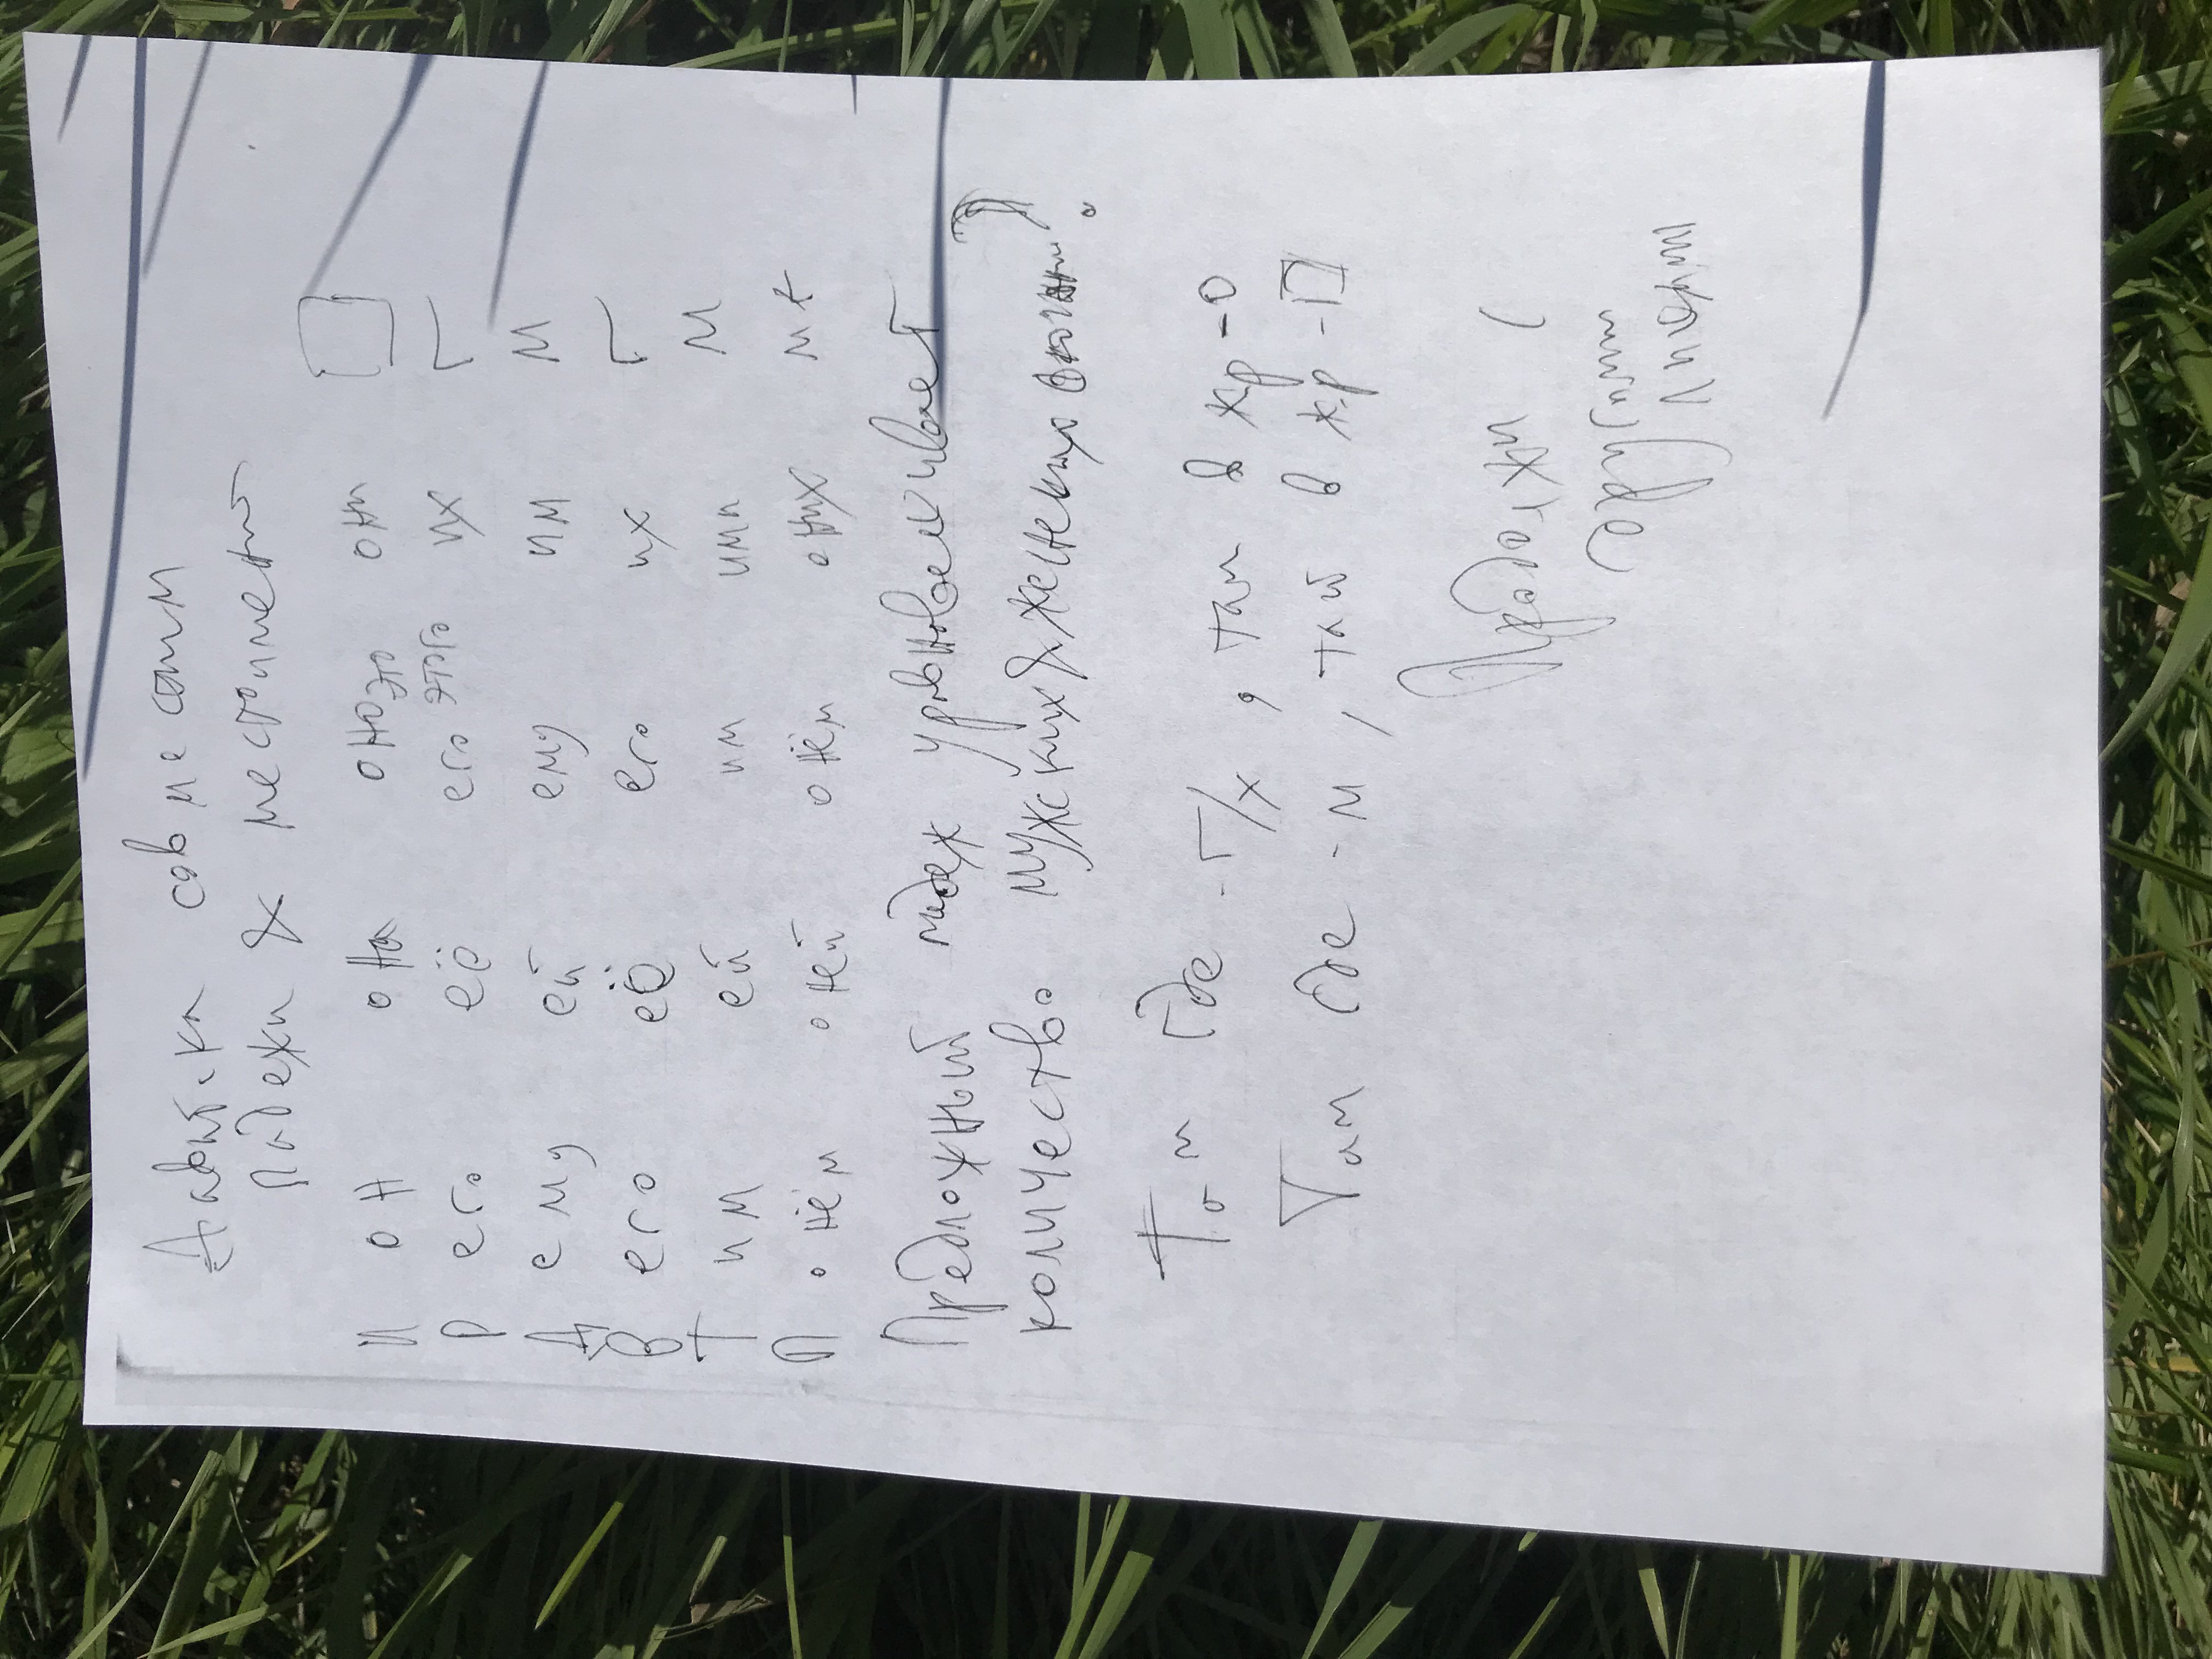 Давайте-ка совместим
падежи & местоимения
И он она оно это они
Р его её его этого их Г
Д ему ей ему им М
В его её его их Г
Т им ей им ими М
П о нём о ней о нём о них М
Предложный падеж уравновешивает
количество мужских & женских ?
Там где -г/х, там в жр -О
Там где -м, там в жр -
Продолжи с
другими
лицами